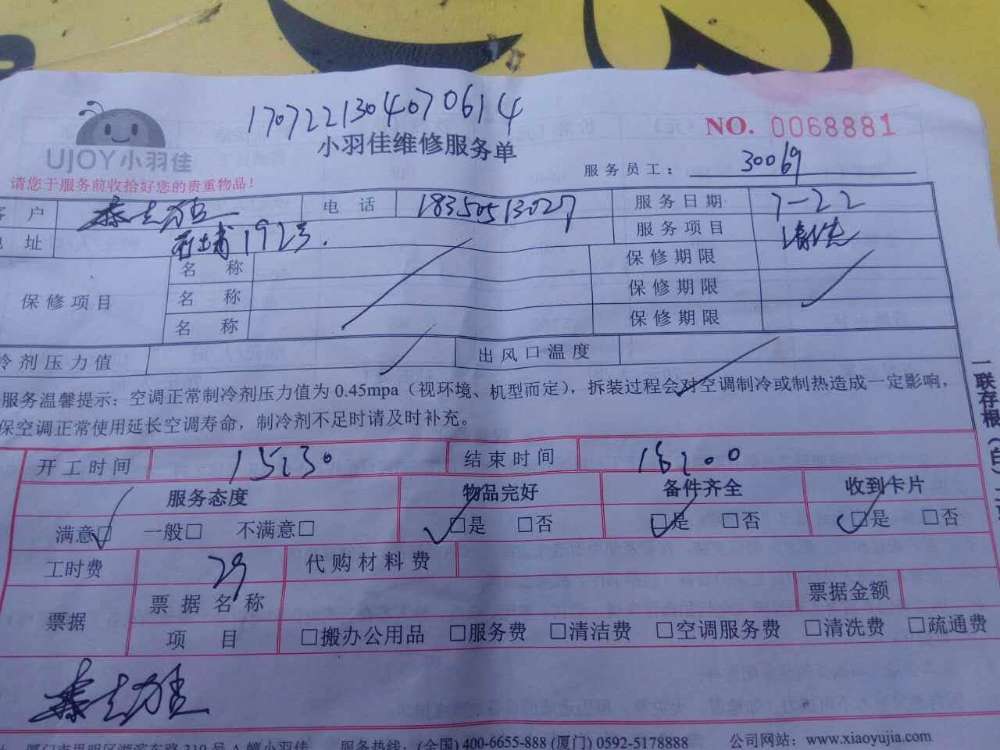 1707221304070614
UJOY小羽佳
小羽佳维修服务单
NO. 0068881
请您于服务前收拾好您的贵重物品!
服务员工: 30069
户 电话 18350513027 服务日期 7-22
址 1923. 服务项目 清洗
保修项目 名称 保修期限
名称 保修期限
名称 保修期限
冷剂压力值 出风口温度
服务温馨提示:空调正常制冷剂压力值为0.45mpa(视环境、机型而定),拆装过程会对空调制冷或制热造成一定影响,
保空调正常使用延长空调寿命,制冷剂不足时请及时补充。
一联存根(白)
开工时间 15:30 结束时间 18:00
服务态度 物品完好 备件齐全 收到卡片
满意□ 一般□ 不满意□ □是 □否 □是 □否 □是 □否
工时费 29 代购材料费
票据 票据名称 票据金额
项目 □搬办公用品 □服务费 □清洁费 □空调服务费 □清洗费 □疏通费
服务热线:(全国) 400-6655-888 (厦门) 0592-5178888 公司网站:www.xiaoyujia.com